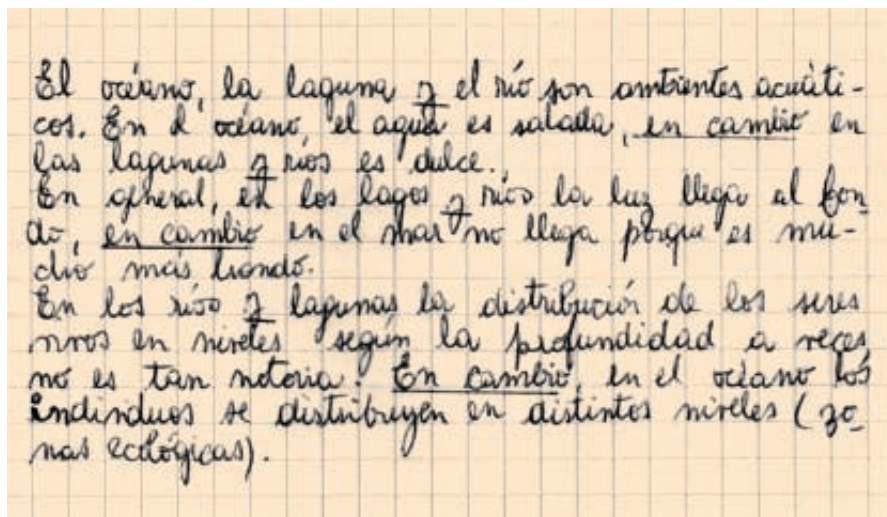 El océano, la laguna y el río son ambientes acuáti-
cos. En el océano, el agua es salada, en cambio en
las lagunas y ríos es dulce.
En general, en los lagos y ríos la luz llega al fon-
do, en cambio en el mar no llega porque es mu-
cho más hondo.
En los ríos y lagunas la distribución de los seres
vivos en niveles según la profundidad a veces
no es tan notoria. En cambio, en el océano los
individuos se distribuyen en distintos niveles (zo-
nas ecológicas).